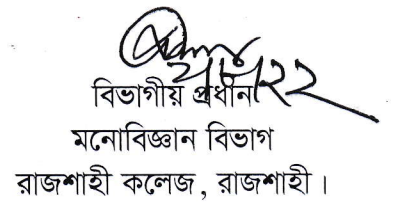 বিভাগীয় প্রধান
মনোবিজ্ঞান বিভাগ
রাজশাহী কলেজ, রাজশাহী।